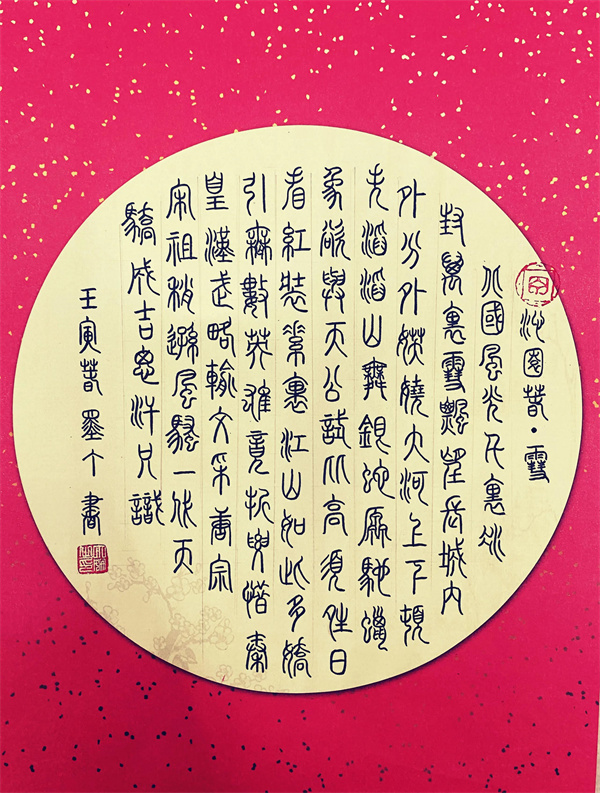 沁園春·雪
北國風光千裏冰
封萬裏雪飄望長城內
外分外妖嬈大河上下頓
失滔滔山舞銀蛇原馳蠟
象欲與天公試比高須晴日
看紅裝素裹江山如此多嬌
引無數英雄竟折腰惜秦
皇漢武略輸文采唐宗
宋祖稍遜風騷一代天
驕成吉思汗只識
壬寅春墨書